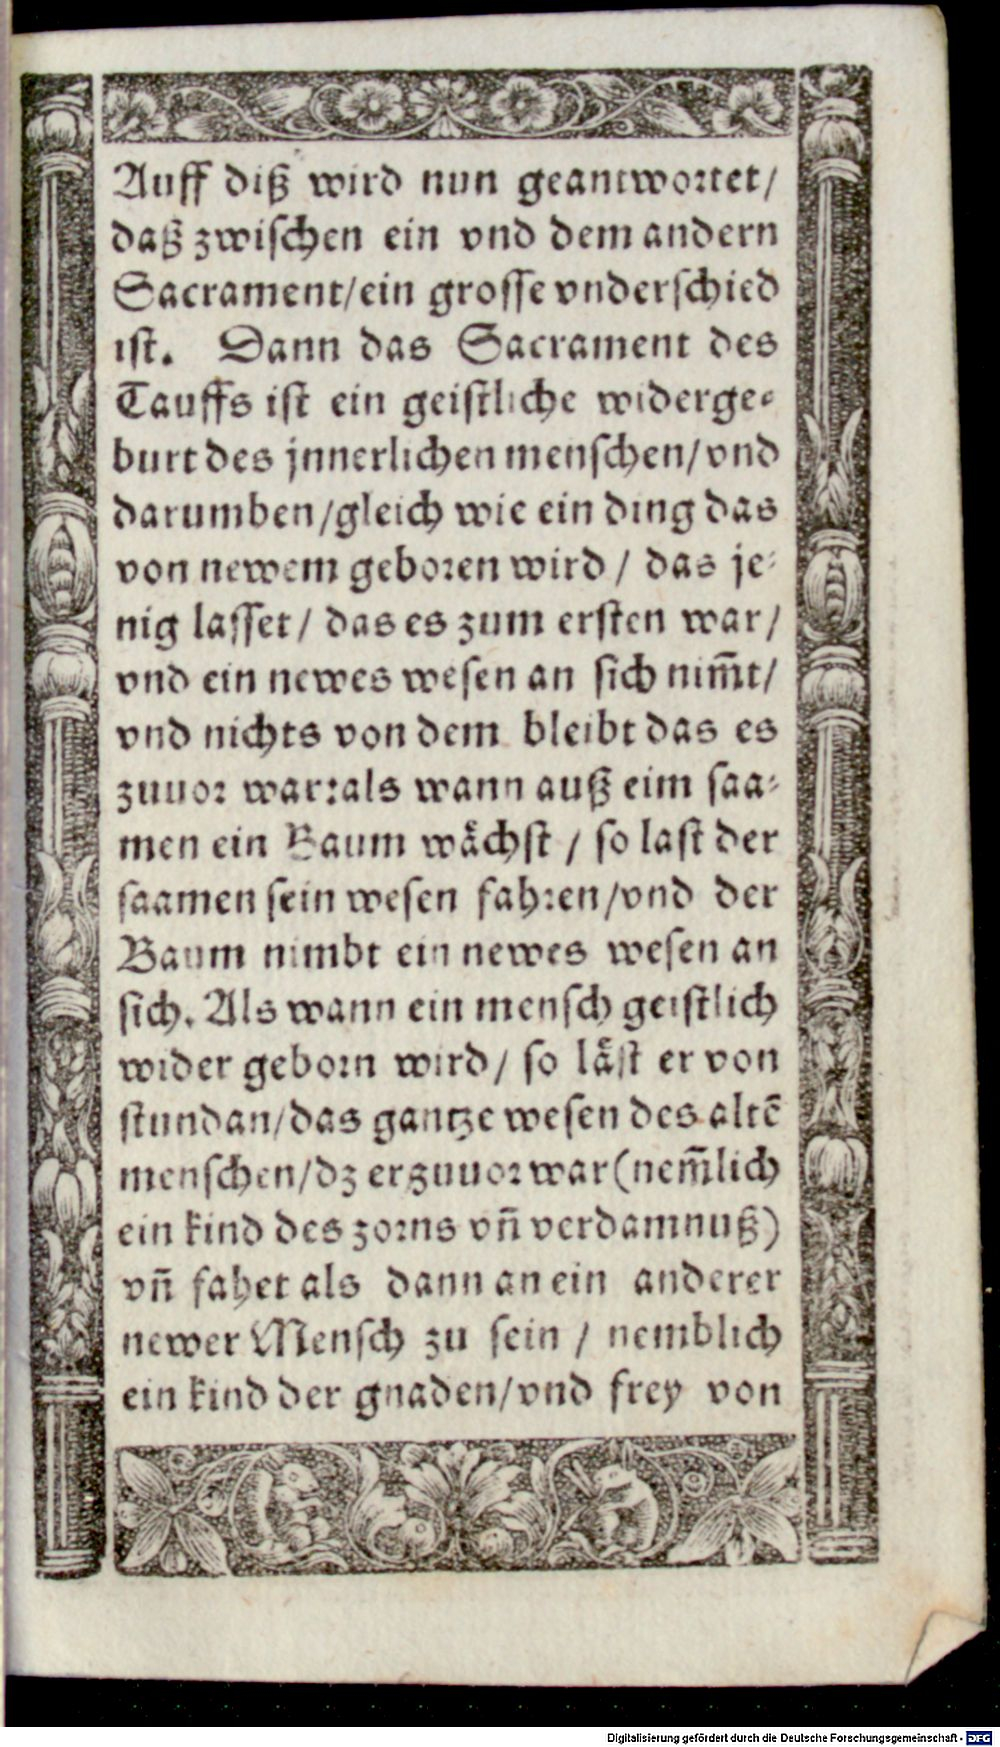 Auff diß wird nun geantwortet/
daß zwischen ein vnd dem andern
Sacrament/ein grosse vnderschied
ist. Dann das Sacrament des
Tauffs ist ein geistliche widerge-
burt des jnnerlichen menschen/vnd
darumben/gleich wie ein ding das
von newem geboren wird / das je-
nig lasset / das es zum ersten war/
vnd ein newes wesen an sich nim̃t/
vnd nichts von dem bleibt das es
zuuor war:als wann auß eim saa-
men ein Baum wåchst / so last der
saamen sein wesen fahren/vnd der
Baum nimbt ein newes wesen an
sich. Als wann ein mensch geistlich
wider geborn wird/ so låst er von
stundan/das gantze wesen des altẽ
menschen/dz er zuuor war(nem̃lich
ein kind des zorns vñ verdamnuß)
vñ fahet als dann an ein anderer
newer Mensch zu sein / nemblich
ein kind der gnaden/vnd frey von
Digitalisierung gefördert durch die Deutsche Forschungsgemeinschaft - DFG